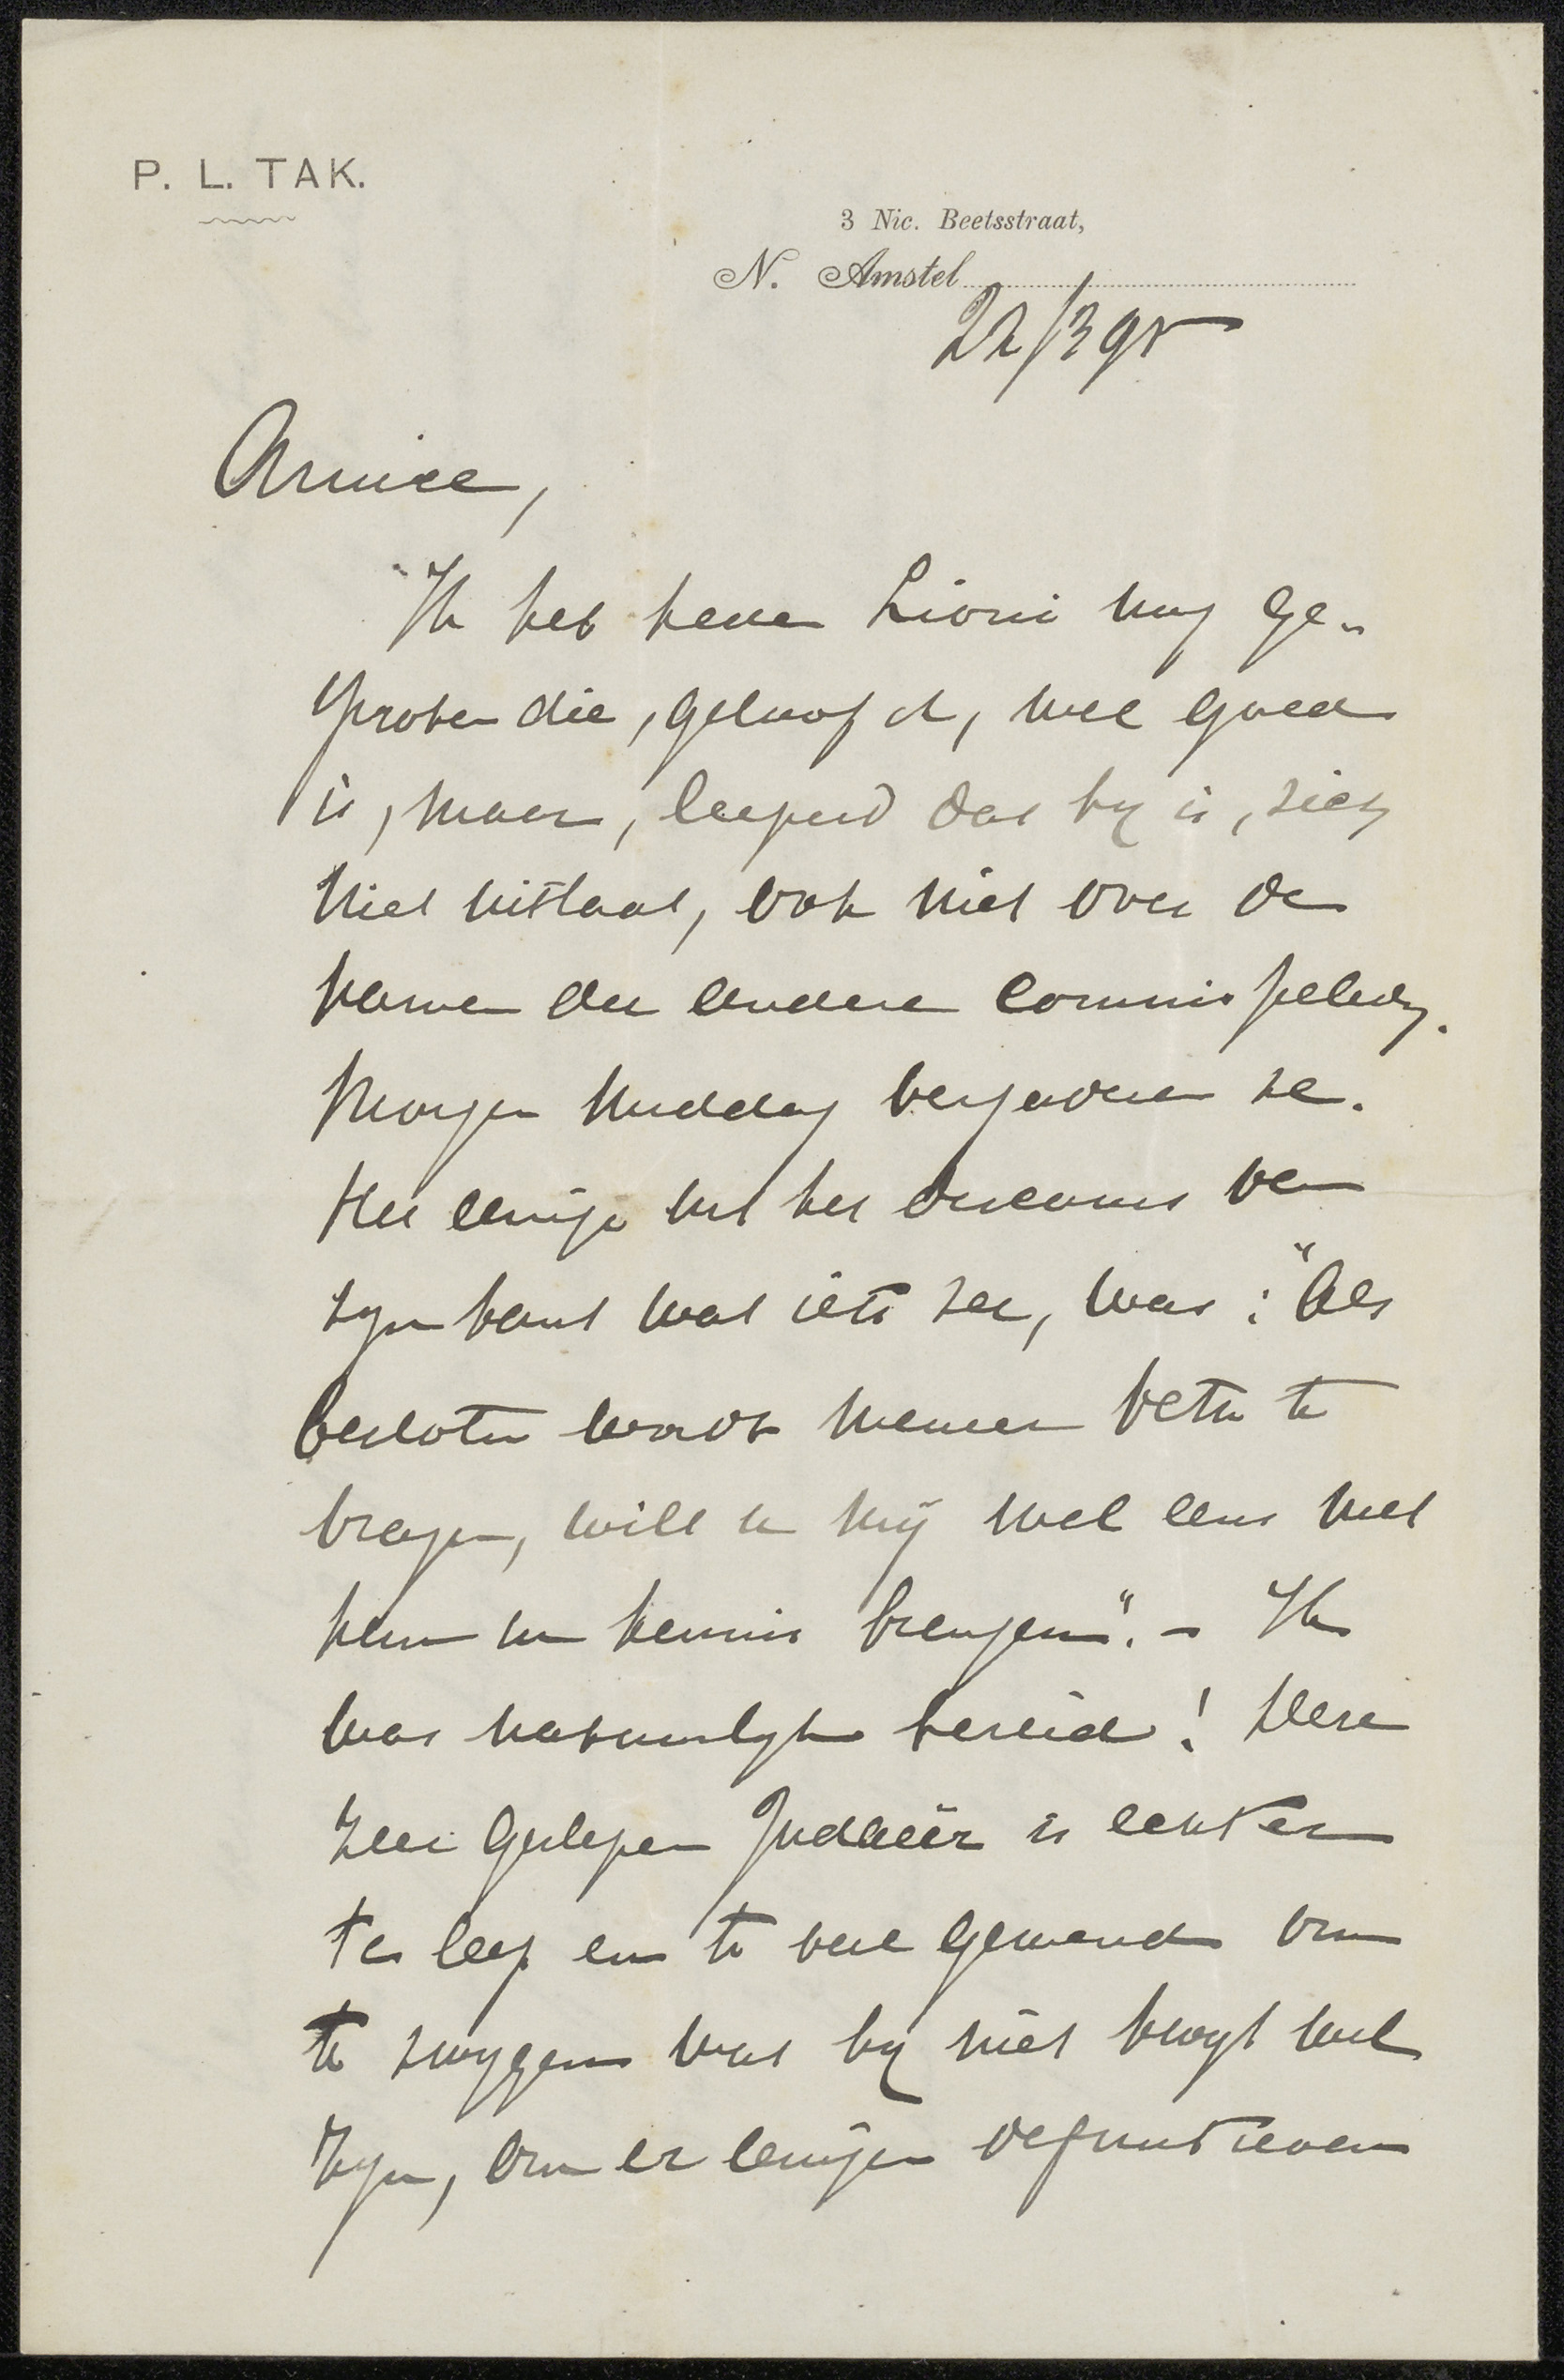 P. L. TAK.
3 Nic. Beetsstraat,
N. Amstel
22/3 95
Amice,
Ik heb heden Lioni nog ge-
sproken die, geloof ik, wel goed
is, maar, leeperd dat hy is, zich
niet uitlaat, ook niet over de
namen der andere commissieleden.
Morgen middag vergaderen ze.
Het eenige uit het discours van
zyn kant wat iets zei, was: "Als
besloten wordt meneer Veth te
vragen, wilt u mij wel eens met
hem in kennis brengen". - Ik
was natuurlyk bereid! Deze
zeer geslepen Judaeër is echter
te leep en te veel gewend om
te zwygen wat hy niet kwyt wil
zyn, om er eenigen definitieven